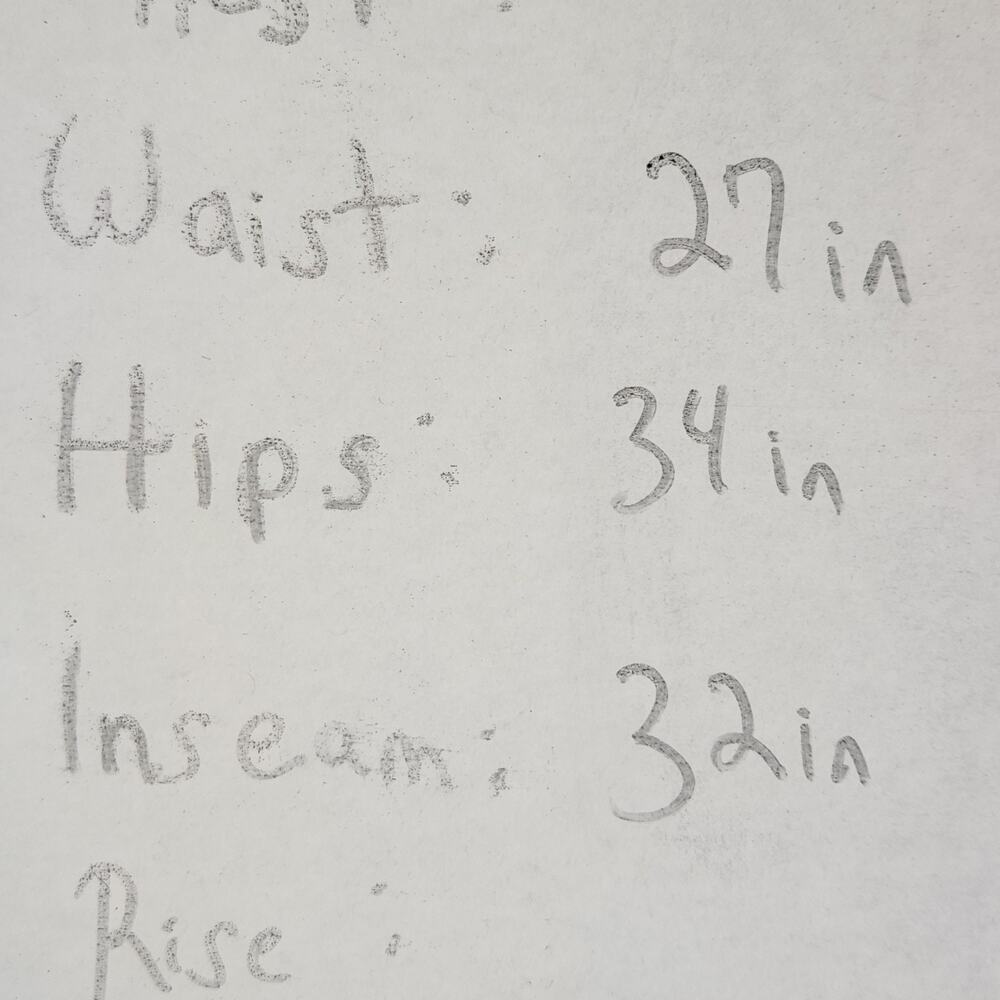 Waist: 27 in
Hips: 34 in
Inseam: 32 in
Rise: